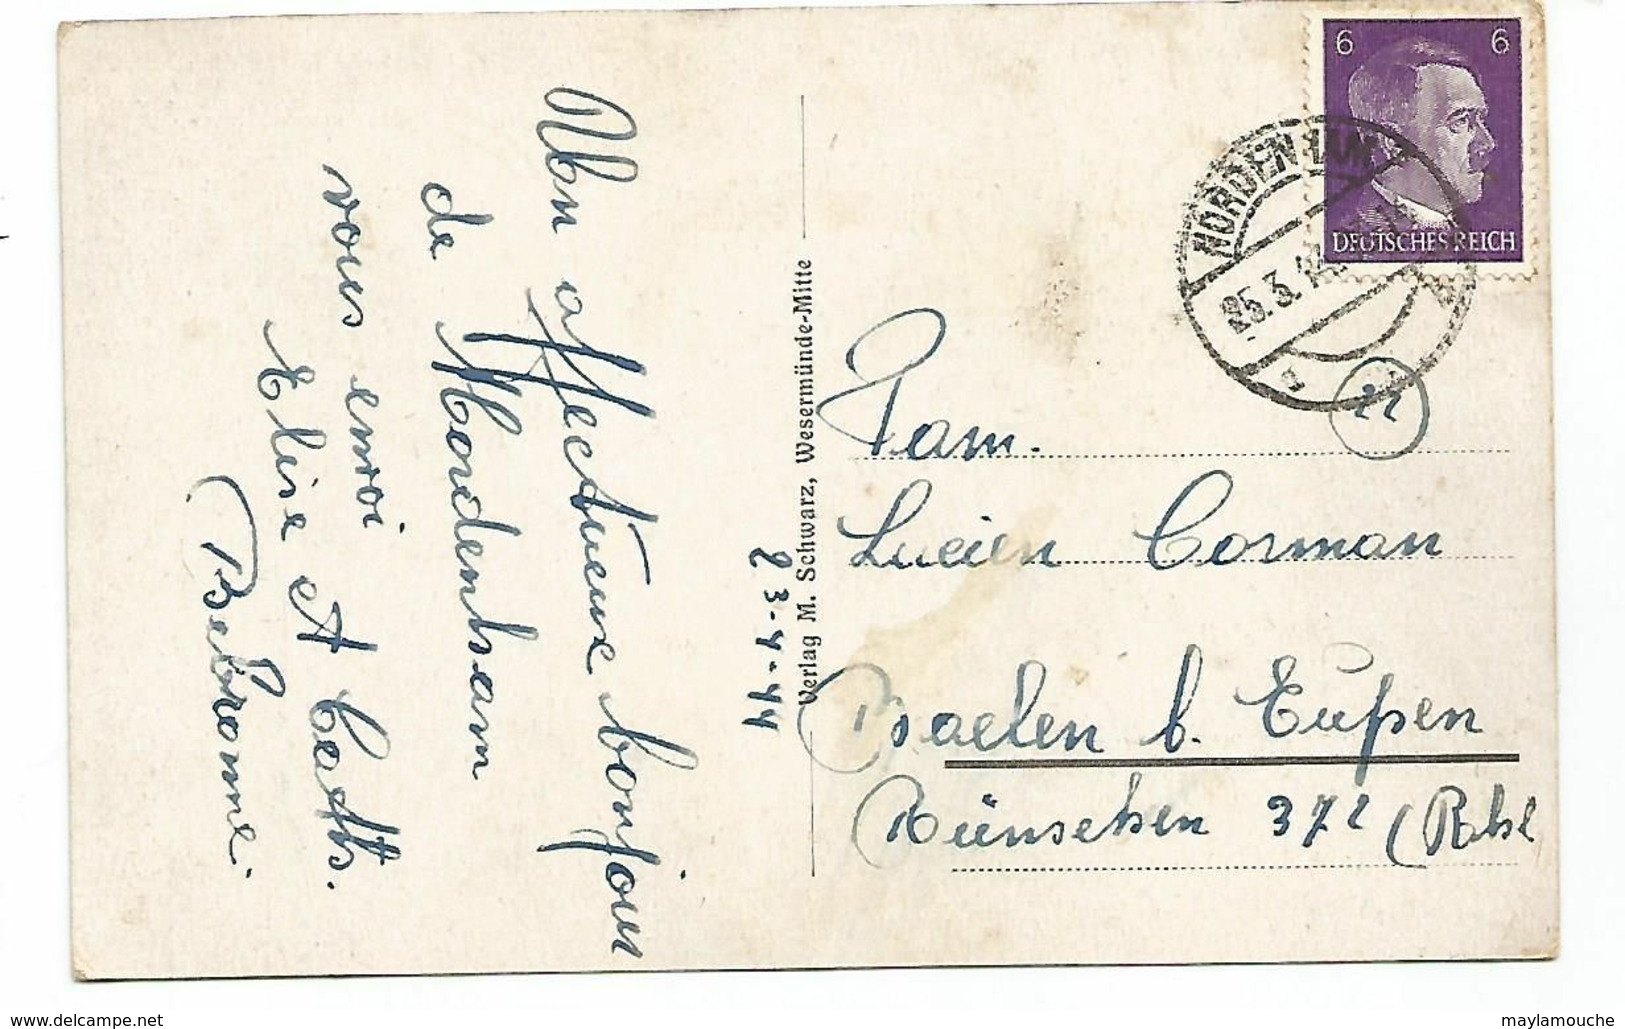 6 6
DEUTSCHES REICH
NORDENHAM
25.3.44
21
Un affectueux bonjour
de Nordenham
vous envoi
Elise et Cath.
23-4-44
Verlag M. Schwarz, Wesermünde-Mitte
Fam.
Lucien Corman
Baelen b. Eupen
372 (Rhl
www.delcampe.net
maylamouche